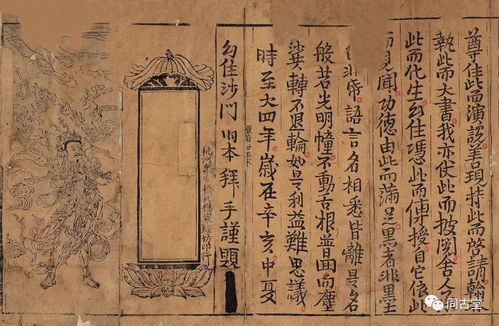 尊住此而演說善現持此而啓請翰
執此而大書我亦使此而披閱舍人
此而化生幻住憑此而傳授自它依此
見聞功德由此而滿足黑者非黑
語言名相悉皆離是名
般若光明幢不動舌根普面塵
轉不退輪如是利益難思議
時至大四年歲在辛亥中夏
幻住沙門明本拜手謹題
印行
同古堂